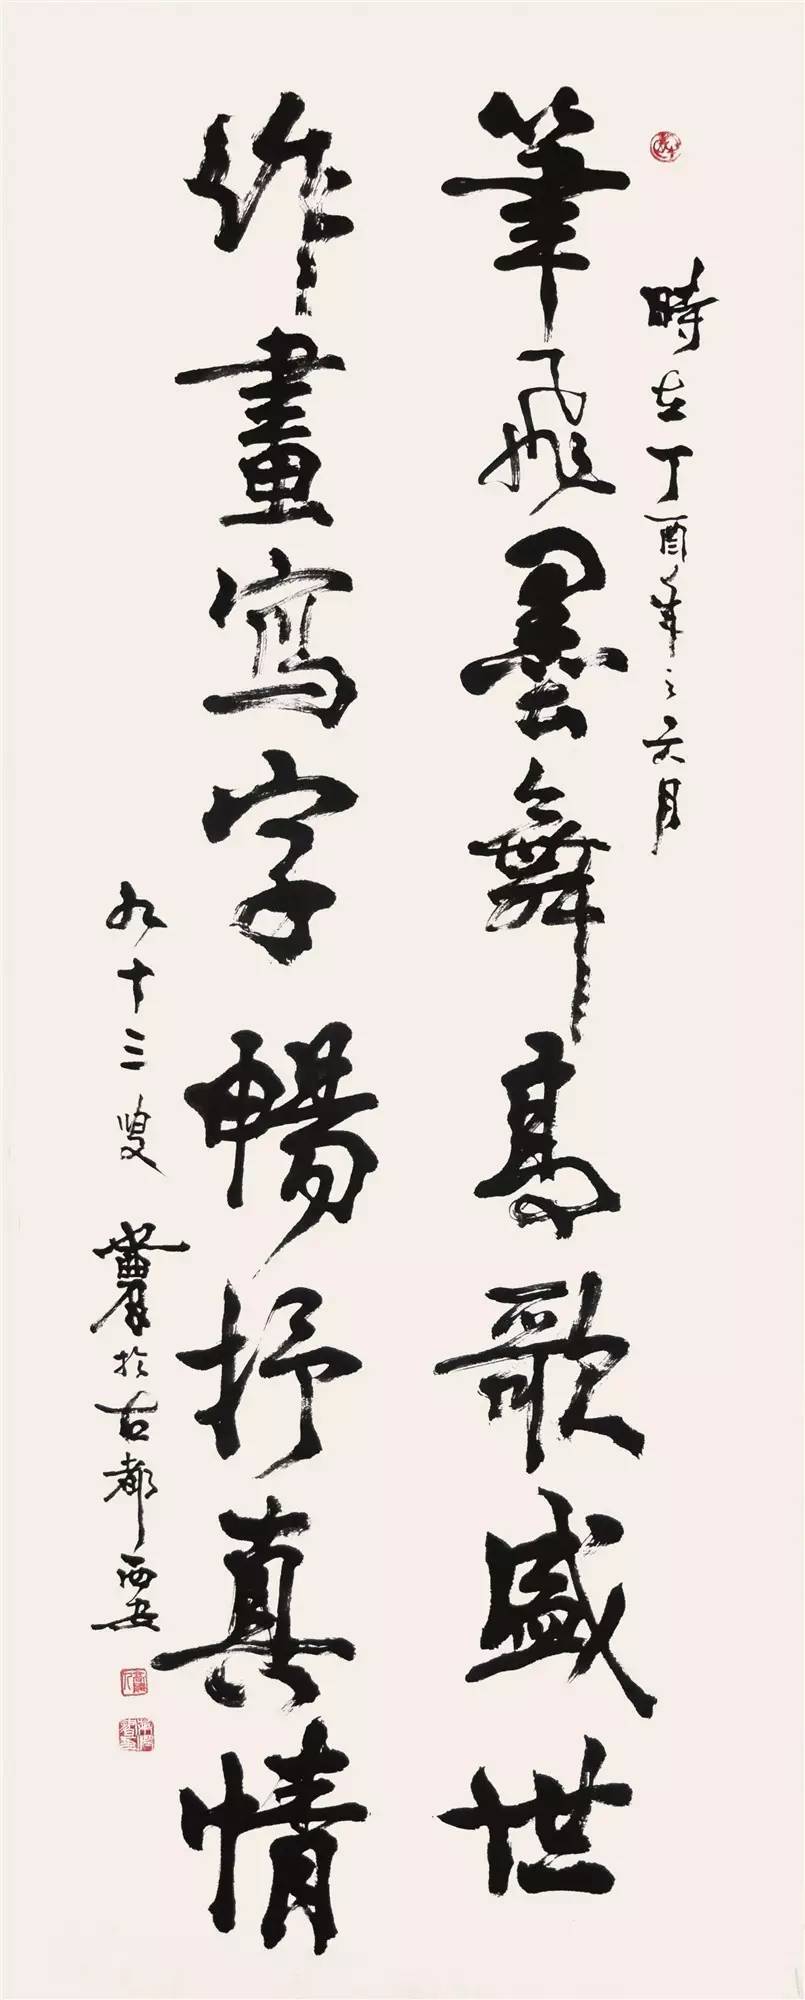 時在丁酉年之六月
筆飛墨舞高歌盛世
作畫寫字暢抒真情
九十三叟
於古都西安